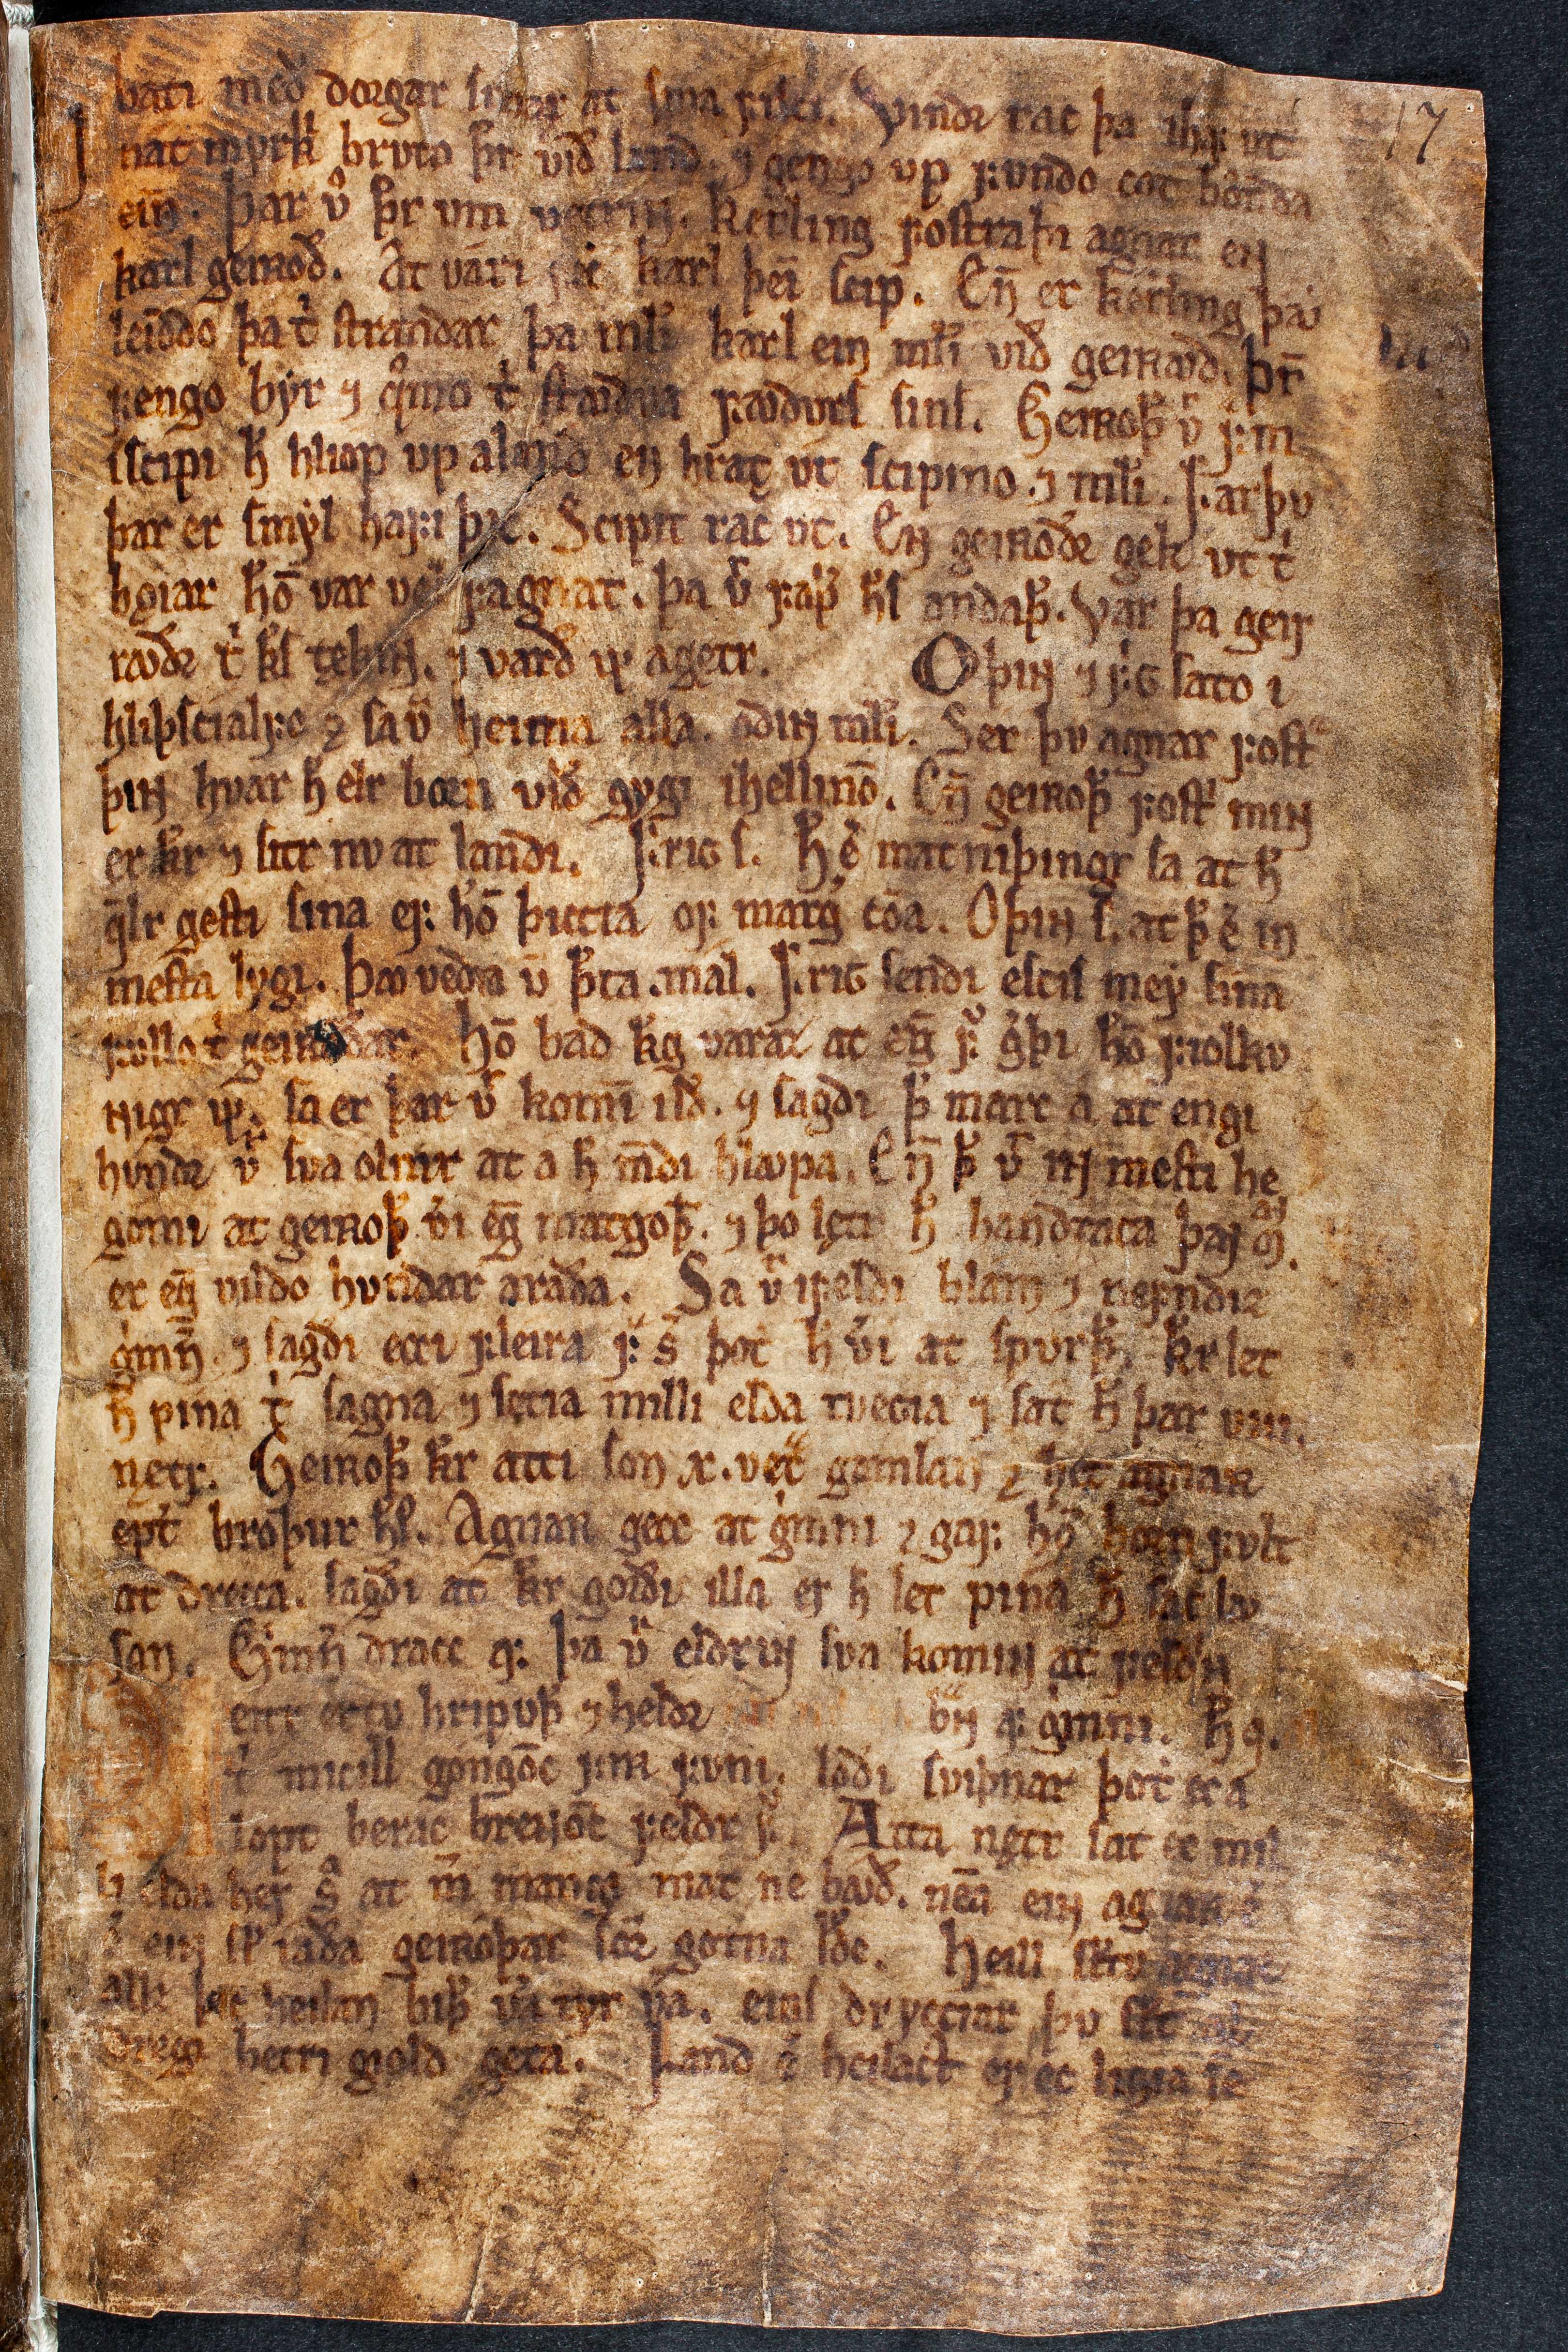 17
bati með dorgar sinar at sma fisci. Vindr rac þa ihaf ut
I nat myrkͥ brvto þr við land. ⁊ gengo vp fvndo cot bonda
ein̄. Þar vͦ þr vm vetrin. Kerling fostraþi agnar en
karl geirroð. At vári fec karl þeī scip. En̄ er kerling þꜹ
leiddo þꜹ t̍ strandar þa mlti karl ein mli við geirrꜹð. Þr̄
fengo byr ⁊ qͦmo t̍ stꜹðva fꜹðvrs sins. Geirroþr v̄ fͣm
iscipi h̄ hliop vp aland en hratt vt scipino. ⁊ mlti. farþv
þar er smyl hafi þic. Scipit rac vt. En geirroðr gek vt t̍
bgiar hō var vel fagnat. þa v̄ faþir h̄s andaþr. Var þa geir
rꜹðr t̍ kſ tekin. ⁊ varð mͬ agetr. Oþin ⁊ frig sato i
hliþscialfo ⁊ sa v̄ heima alla. oðin mlti. Ser þv agnar fostr
þin hvar h̄ elr born við gygi ihellinō. En̄ geirroþr fostri min
er kr ⁊ sitr nv at landi. Frig s. h̄ ē matniþingr sa at h̄
qͥlr gesti sina ef hō þiccia of marg̍ coma. Oþin s. at þ ē in
mesta lygi. Þꜹ veðia v̄ þta mal. Frig sendi escis mey sina
fullo t̍ geirroðar. hō bað kg varaz at eḡ fv g̍þi hō fiolkv
nigr mͬ sa er þar v̄ komin̄ ild. ⁊ sagði þ marc a at engi
hvndr v̄ sva olmr at a h̄ mdi hlꜹpa. En̄ þ v̄ in mesti he
gomi at geirroþr v̍i eḡ matgoþr. ⁊ þo letr h̄ handtaca þan m̄
er eḡ vildo hvndar araða. Sa v̄ ifeldi blam ⁊ nefndiz
g̍mn̄. ⁊ sagði ecci fleira f̄ s̄ þot h̄ v̍i at spvrþr. kr let
h̄ pina t̍ sagna ⁊ setia milli elda tveGia ⁊ sat h̄ þar viii.
netr. Geirroþr kr atti son x. vetͣ gamlan ⁊ het agnaR
ept̍ broþur h̄s. AgnaR gecc at g̍mni ⁊ gaf hō horn fvlt
at drecca. sagði at kr gorði illa er h̄ let pina h̄ sac lꜹ
san. G̍mn̄ dracc af þa v̄ eldrin sva komin at feldrin
eitr ertv hripvþr ⁊ heldr bn̄ af g̍mni. h̄ q.
t̍ micill gongōc firr fvni. loði sviþnar þot ec a
lopt berac brenōc feldr f̄. Atta netr sat ec mil
li elda her s̄ at m̄ mangi mat ne bꜹð. nēa ein agnaR ē
ē ein scl raða geirroþar sonr gotna ldi. Heill scltv agnar
allz þic heilan biþr v̍a tyr v̍a. eins drycciar þv sclt al
dregi betri giold geta. Land ē heilact er ec liGia se